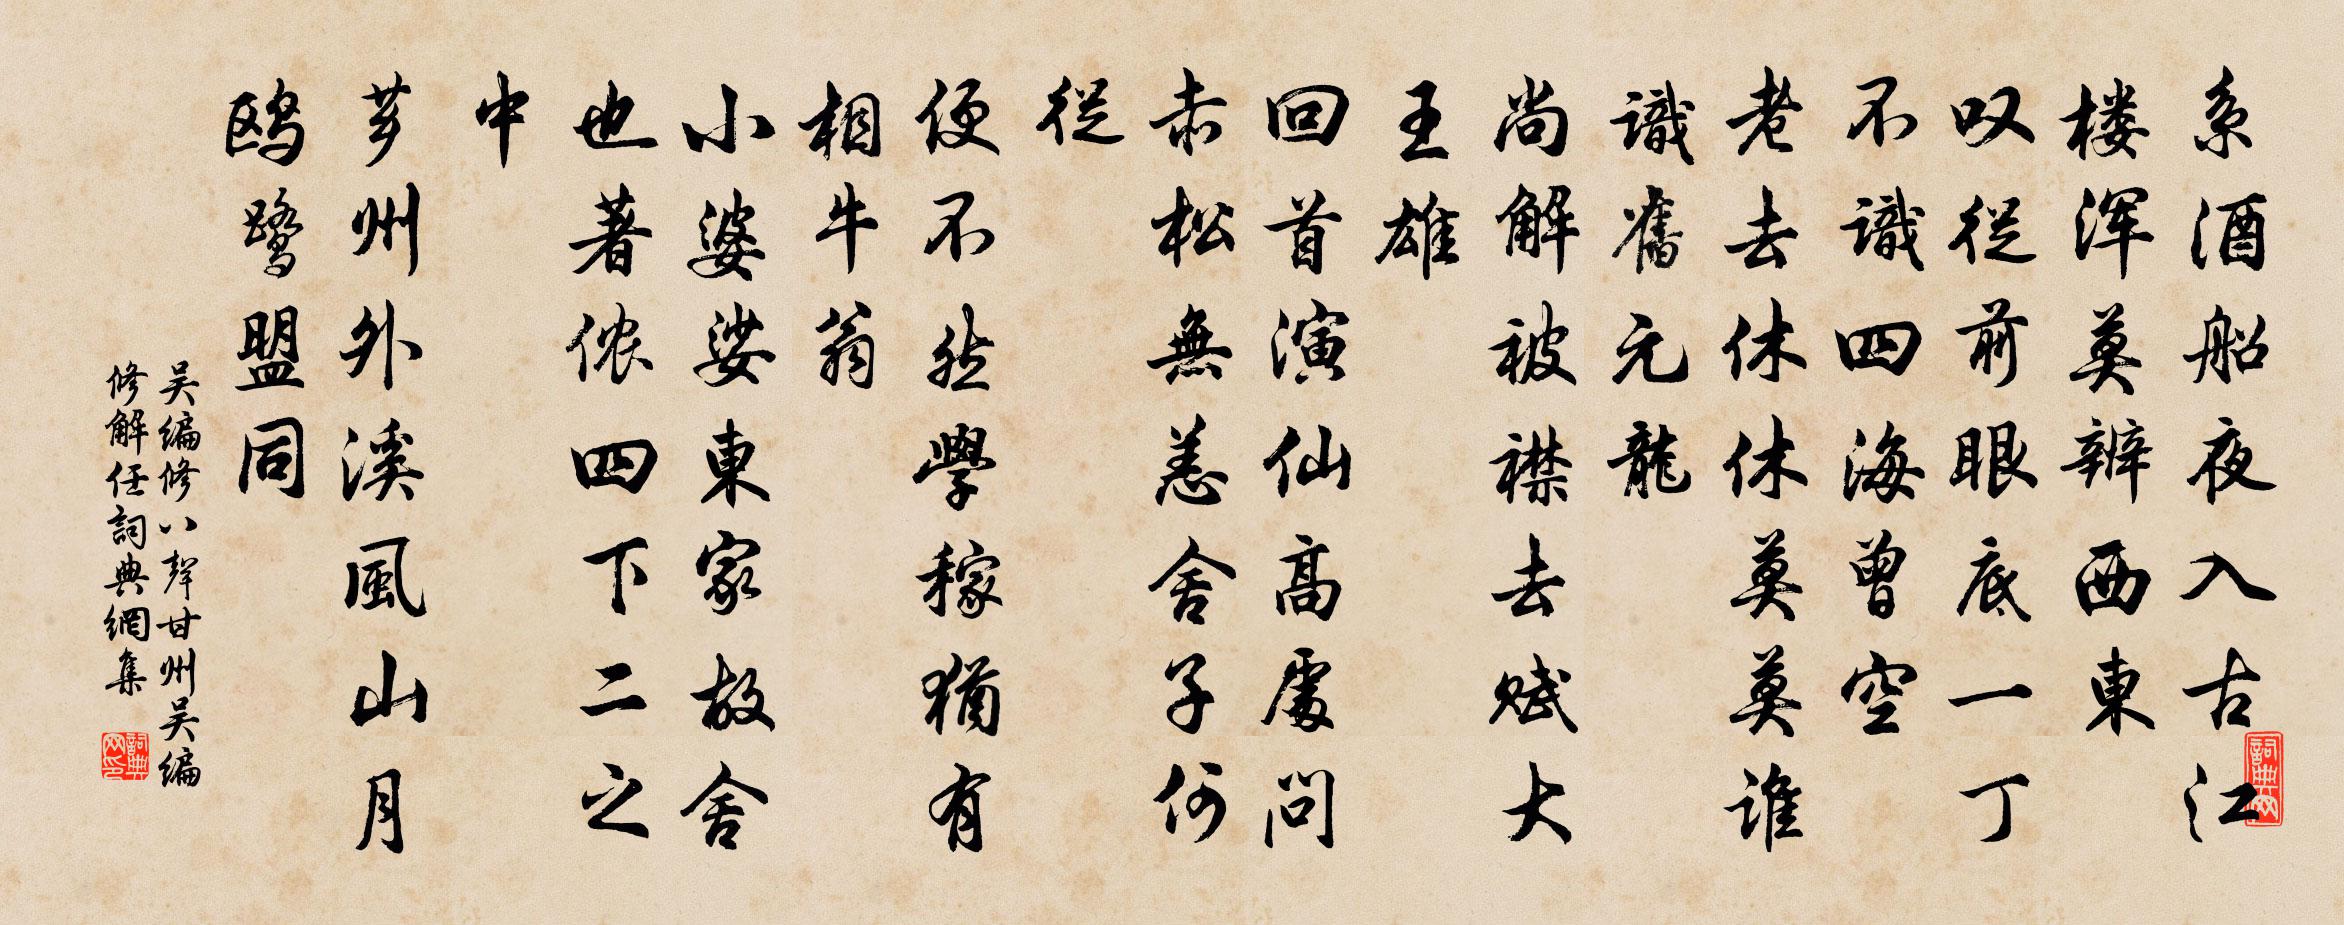 系酒船夜入古江
楼浑莫辨西東
叹從前眼底一丁
不識四海曾空
老去休休莫莫谁
識舊元龍
尚解被襟去赋大
王雄
回首演仙高處问
赤松無恙舍子何
從
便不然學稼猶有
相牛翁
小婆娑東家故舍
也著侬四下二之
中
芗州外溪風山月
鸥鹭盟同
吴编修八聲甘州吴编
修解任詞典網集
詞典网
詞典网印